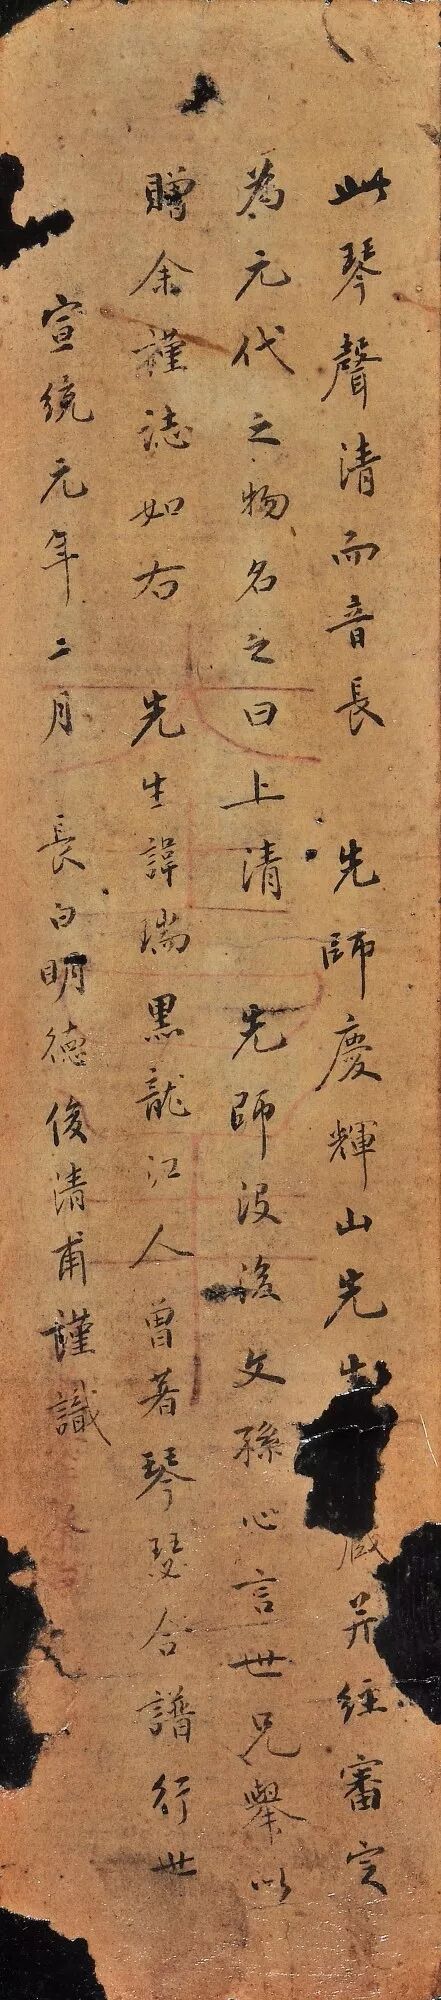 此琴聲清而音長　先師慶輝山先生藏并經審定
為元代之物名之曰上清　先師没後文孫心言世兄舉以
贈余謹誌如右　先生諱瑞黑龍江人曾著琴瑟合譜行世
宣統元年二月　長白明德俊清甫謹識